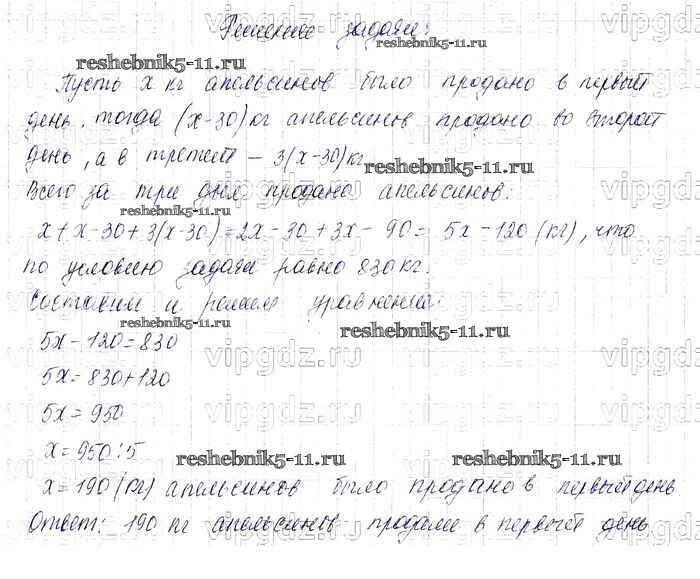 Решение задачи:
reshebnik5-11.ru
reshebnik5-11.ru
Пусть x кг апельсинов было продано в первый
день, тогда (x-30) кг апельсинов продано во второй
день, а в третий - 3(x-30) кг.
reshebnik5-11.ru
Всего за три дня продано апельсинов:
reshebnik5-11.ru
x+x-30+3(x-30)=2x-30+3x-90= 5x-120 (кг), что
по условию задачи равно 830 кг.
Составим и решим уравнение:
reshebnik5-11.ru
reshebnik5-11.ru
5x-120=830
5x=830+120
5x=950
x=950:5
reshebnik5-11.ru
reshebnik5-11.ru
x=190 (кг) апельсинов было продано в первый день
Ответ: 190 кг апельсинов продали в первый день
vipgdz.ru
vipgdz.ru
vipgdz.ru
vipgdz.ru
vipgdz.ru
vipgdz.ru